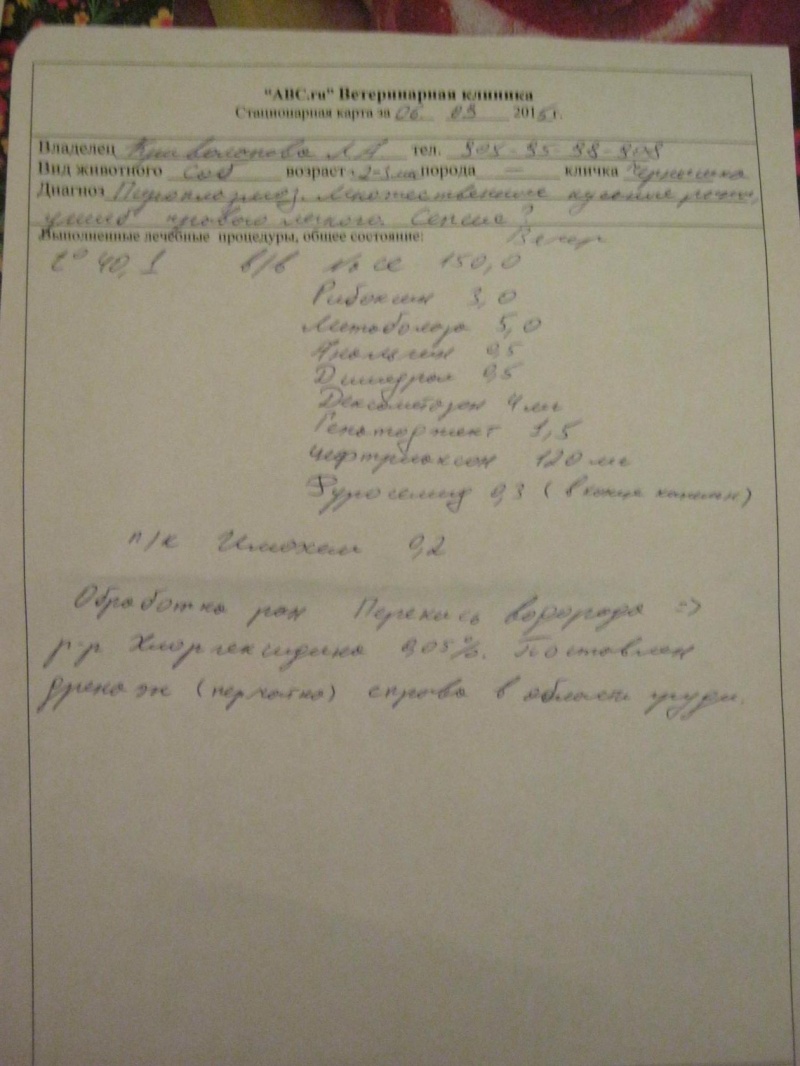 "АВС.ru" Ветеринарная клиника
Стационарная карта за 06 09 2015 г.
Владелец Криволапова Л А тел.
Вид животного Соб возраст порода — кличка Чернышка
Диагноз Пироплазмоз. Множественные кусаные раны,
ушиб правого легкого. Сепсис?
Выполненные лечебные процедуры, общее состояние: Вечер
t° 40,1 в/в NaCl 150,0
Рибоксин 3,0
Метаболаза 5,0
Анальгин 0,5
Димедрол 0,5
Дексаметазон 4 мг
Гепатоджект 1,5
Цефтриаксон 120 мг
Фуросемид 0,3 (в конце капельн)
п/к Имохем 0,2
Обработка ран Перекись водорода =>
р-р Хлоргексидина 0,05%. Поставлен
дренаж (перчатка) справа в области груди.